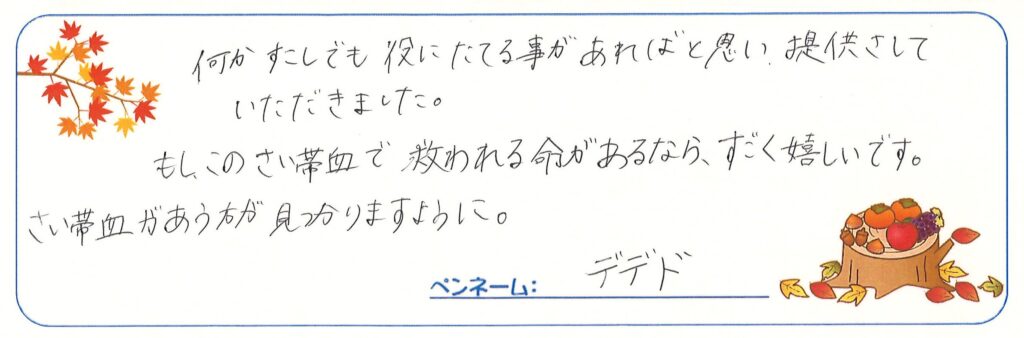 何かすこしでも役にたてる事があればと思い、提供さして
いただきました。
もし、このさい帯血で救われる命があるなら、すごく嬉しいです。
さい帯血があう方が見つかりますように。
ペンネーム: デデド